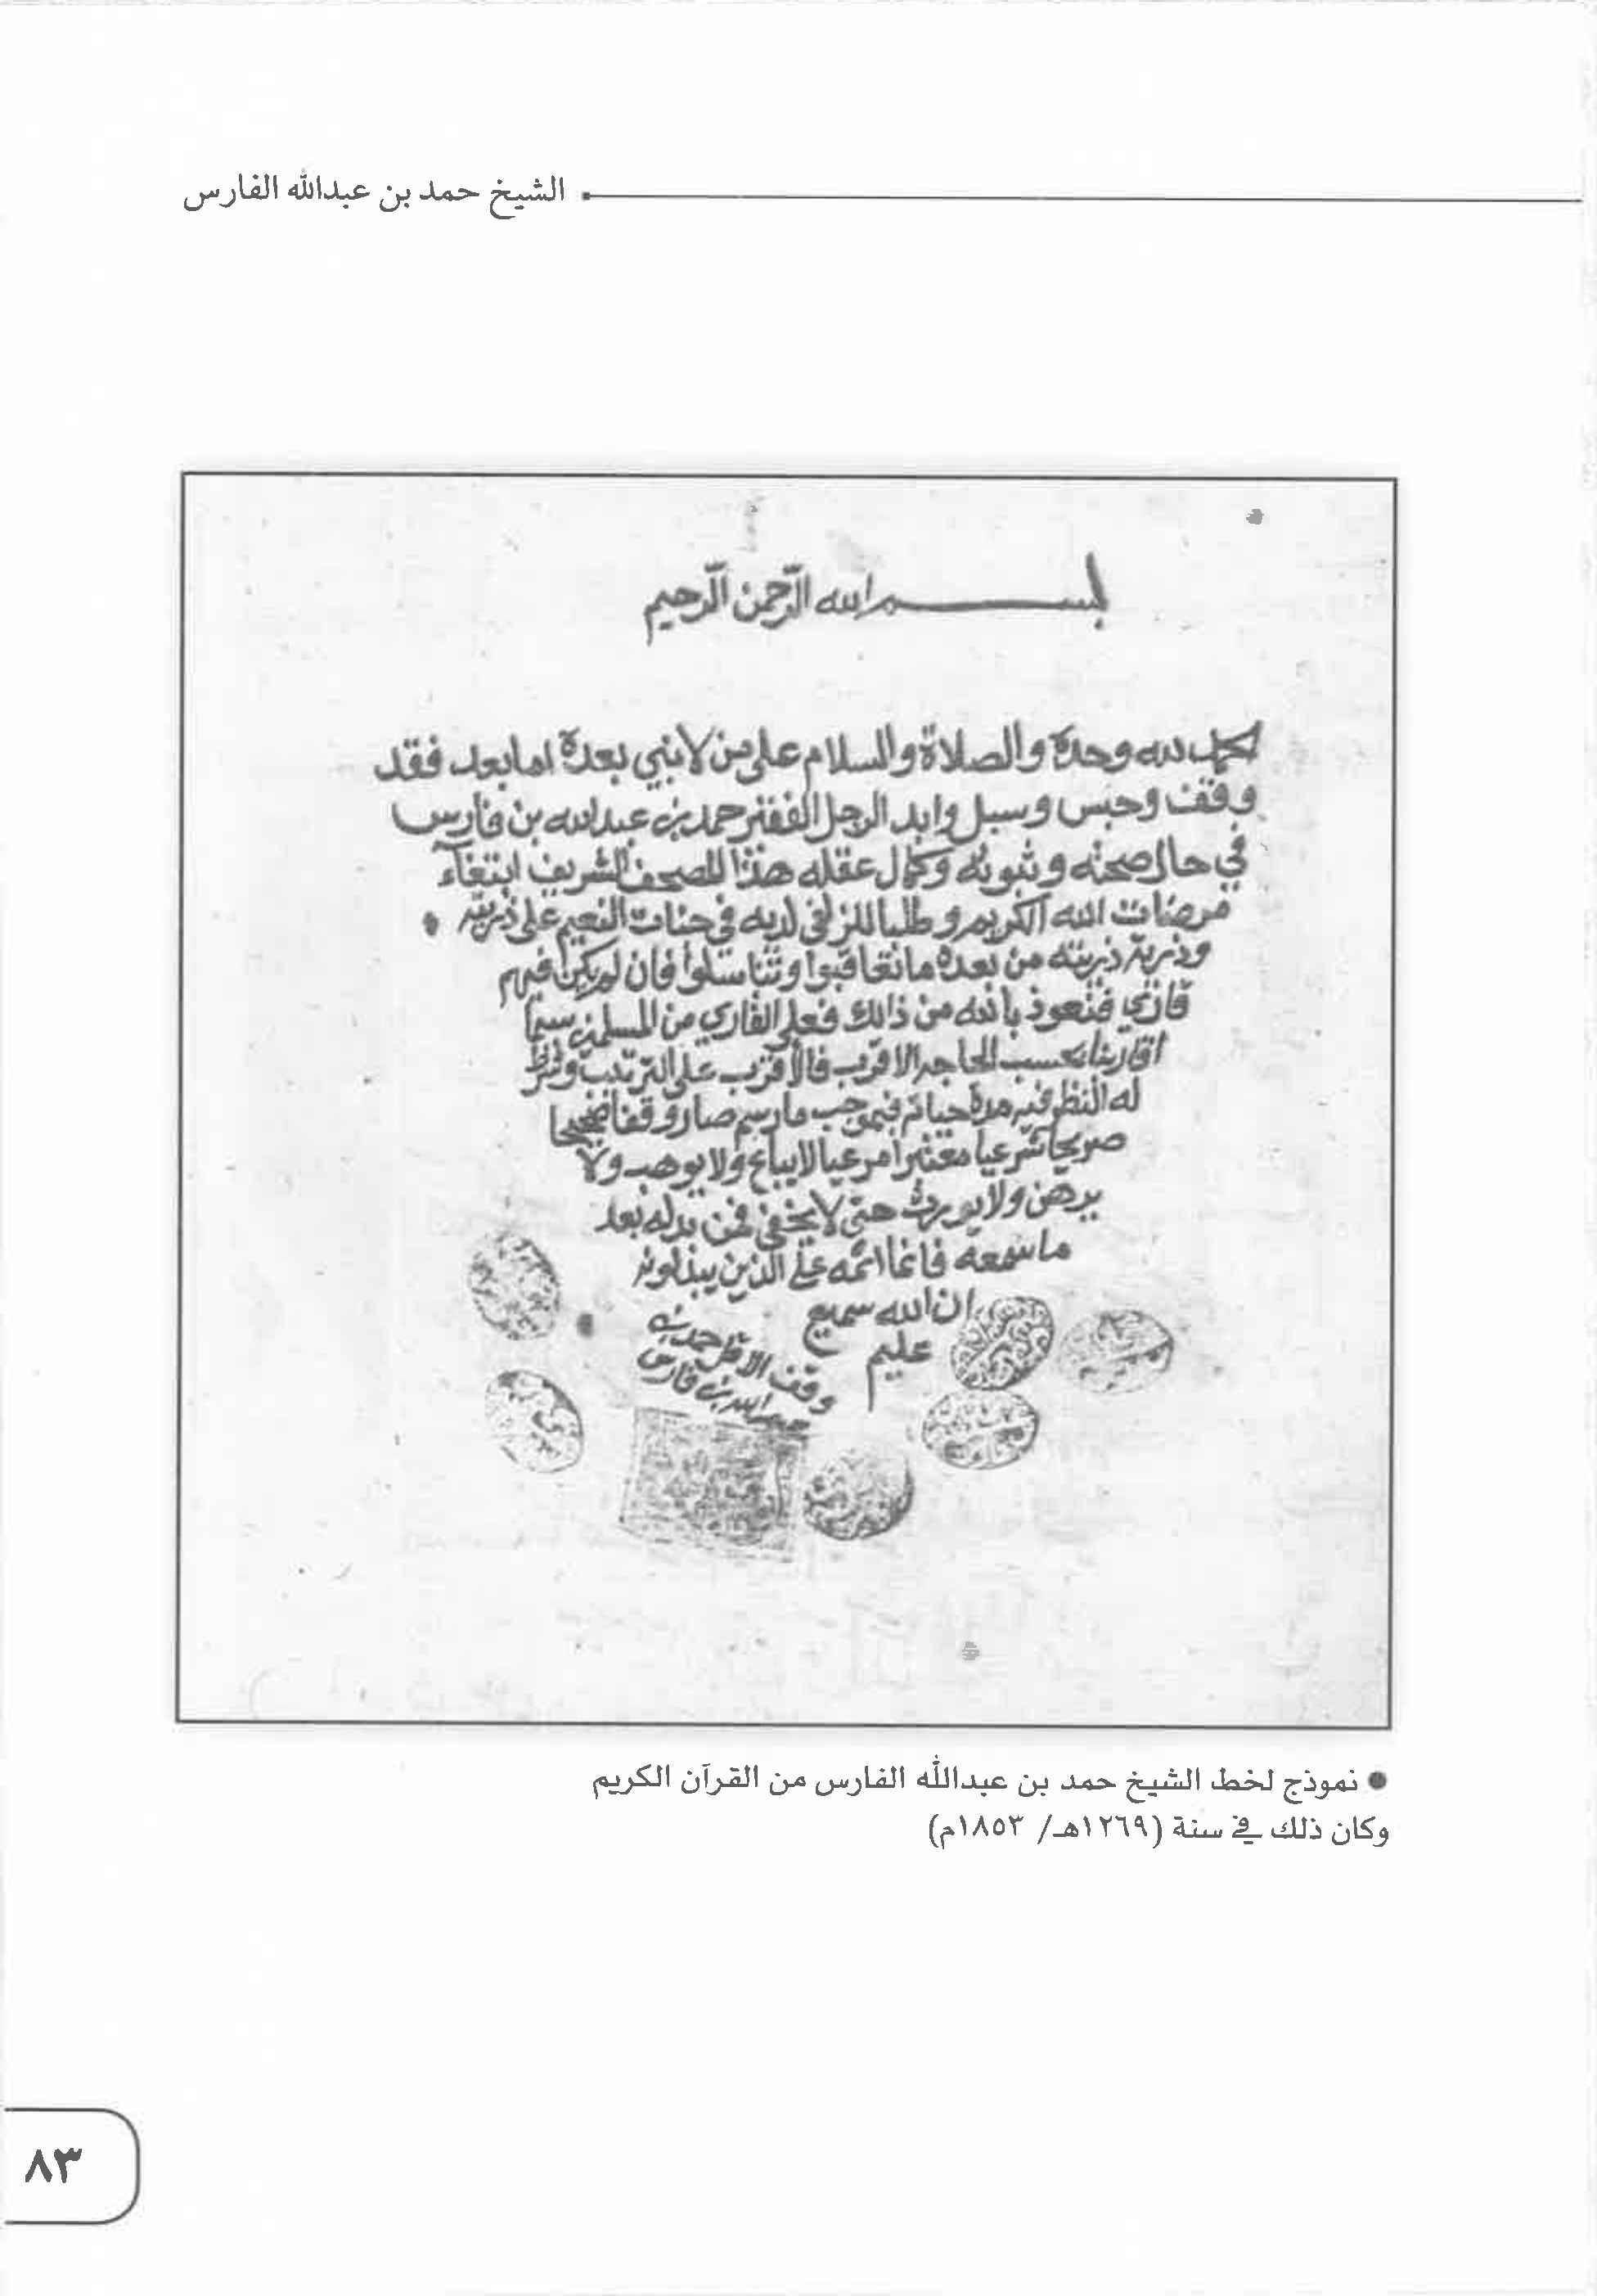 الشيخ حمد بن عبدالله الفارس
بسم الله الرحمن الرحيم
الحمد لله وحده والصلاة والسلام على من لا نبي بعده اما بعد فقد
وقف وحبس وسبل وابد الرجل الفقير حمد بن عبد الله بن فارس
في حال صحته وثبوته وكمال عقله هذا المصحف الشريف ابتغآء
مرضات الله الكريم وطلبا للزلفى لديه في جنات النعيم على ذريته
وذرية ذريته من بعده ما تعاقبوا وتناسلوا فان لم يكن فيهم
قاري فنعوذ بالله من ذالك فعلى القاري من المسلمين سيما
اقاربنا بحسب الحاجه الاقرب فالاقرب على الترتيب وشرط
له النظر فيه مدة حياته فبموجب ما رسم صار وقفا صحيحا
صريحا شرعيا معتبرا مرعيا لا يباع ولا يوهب ولا
يرهن ولا يورث حتى لا يخفى فمن بدله بعد
ما سمعه فانما اثمه على الذين يبدلونه
ان الله سميع
عليم
وقف الاقل حمد بن
عبد الله بن فارس
● نموذج لخط الشيخ حمد بن عبدالله الفارس من القرآن الكريم
وكان ذلك في سنة (١٢٦٩هـ/ ١٨٥٣م)
٨٣